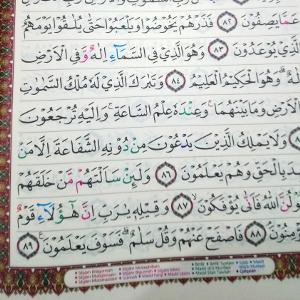 عَمَّا يَصِفُونَ ٨٢ فَذَرْهُمْ يَخُوضُوا وَيَلْعَبُوا حَتَّى يُلَاقُوا يَوْمَهُمُ
الَّذِي يُوعَدُونَ ٨٣ وَهُوَ الَّذِي فِي السَّمَاءِ إِلَهٌ وَفِي الْأَرْضِ
وَهُوَ الْحَكِيمُ الْعَلِيمُ ٨٤ وَتَبَارَكَ الَّذِي لَهُ مُلْكُ السَّمَوَاتِ
وَالْأَرْضِ وَمَا بَيْنَهُمَا وَعِنْدَهُ عِلْمُ السَّاعَةِ وَإِلَيْهِ تُرْجَعُونَ
وَلَا يَمْلِكُ الَّذِينَ يَدْعُونَ مِنْ دُونِهِ الشَّفَاعَةَ إِلَّا مَنْ
شَهِدَ بِالْحَقِّ وَهُمْ يَعْلَمُونَ ٨٦ وَلَئِنْ سَأَلْتَهُمْ مَنْ خَلَقَهُمْ
لَيَقُولُنَّ اللَّهُ فَأَنَّى يُؤْفَكُونَ ٨٧ وَقِيلِهِ يَارَبِّ إِنَّ هَؤُلَاءِ قَوْمٌ
يُؤْمِنُونَ ٨٨ فَاصْفَحْ عَنْهُمْ وَقُلْ سَلَامٌ فَسَوْفَ يَعْلَمُونَ ٨٩